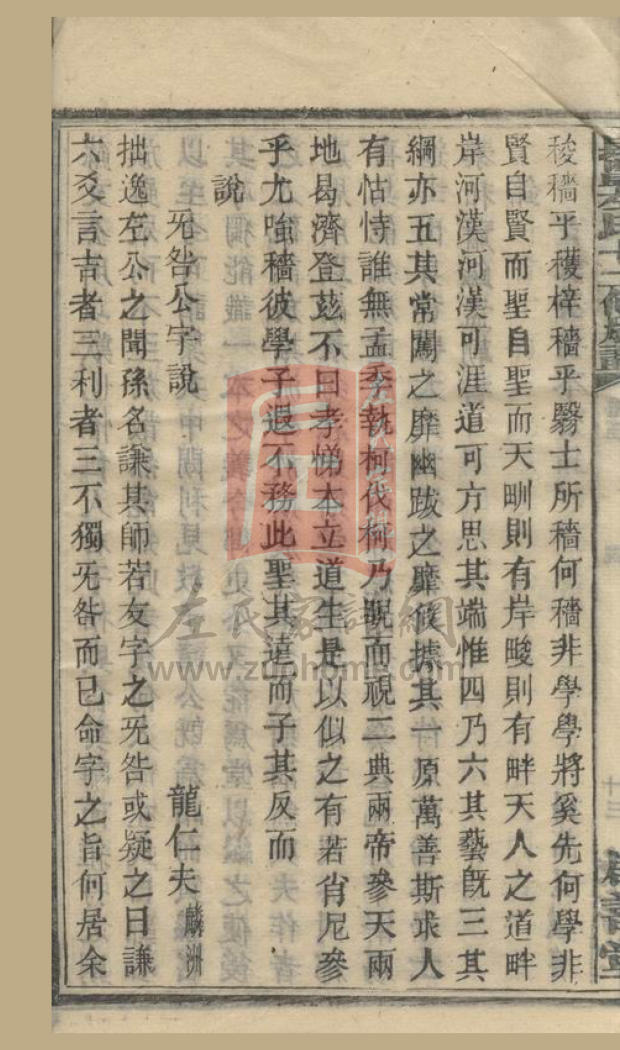 稜穡乎穫梓穡乎斲士所穡何穡非學學將奚先何學非
賢自賢而聖自聖而天㽛則有岸畯則有畔天人之道畔
岸河漢河漢可涯道可方思其端惟四乃六其藝旣三其
綱亦五其常闖之靡幽跋之靡倏據其一原萬善斯求人
有怙恃誰無孟季執柯伐柯乃睨而視二典兩帝參天兩
地曷濟登玆不曰孝悌本立道生是以似之有若肖尼參
乎尤唯穡彼學子退不務此聖其遠而子其反而
說
旡咎公字說 龍仁夫 麟洲
拙逸左公之聞孫名謙其師若友字之旡咎或疑之曰謙
六爻言吉者三利者三不獨旡咎而已命字之旨何居余
十三
左氏家譜網
www.zuohome.com